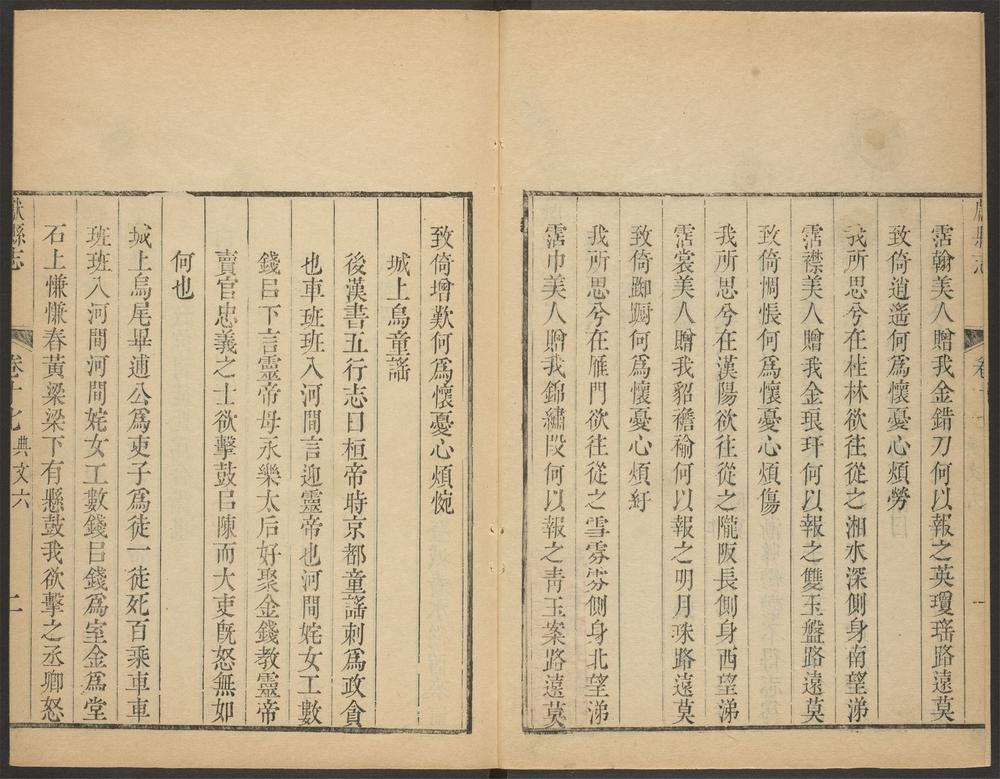 獻縣志
卷十
一
霑翰美人贈我金錯刀何以報之英瓊瑤路遠莫
致倚逍遙何爲懷憂心煩勞
我所思兮在桂林欲往從之湘水深側身南望涕
霑襟美人贈我金琅玕何以報之雙玉盤路遠莫
致倚惆悵何爲懷憂心煩傷
我所思兮在漢陽欲往從之隴阪長側身西望涕
霑裳美人贈我貂襜褕何以報之明月珠路遠莫
致倚踟躕何爲懷憂心煩紆
我所思兮在雁門欲往從之雪雰雰側身北望涕
霑巾美人贈我錦繡段何以報之靑玉案路遠莫
致倚增歎何爲懷憂心煩惋
城上烏童謠
後漢書五行志曰桓帝時京都童謠刺爲政貪
也車班班入河間言迎靈帝也河間姹女工數
錢㠯下言靈帝母永樂太后好聚金錢教靈帝
賣官忠義之士欲擊鼓㠯陳而大吏旣怒無如
何也
城上烏尾畢逋公爲吏子爲徒一徒死百乘車車
班班入河間河間姹女工數錢㠯錢爲室金爲堂
石上慊慊舂黃粱梁下有懸鼓我欲擊之丞卿怒
獻縣志
卷十七 典文六
二